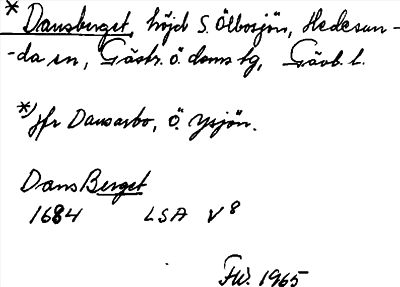 * Dansberget, höjd S. Ölbosjön, Hedesun-
-da sn, Gästr. ö. doms lg, Gävb. l.
*) jfr Dansarbo, Ö. Ysjön.
DansBerget
1684 LSA V 8
FW. 1965